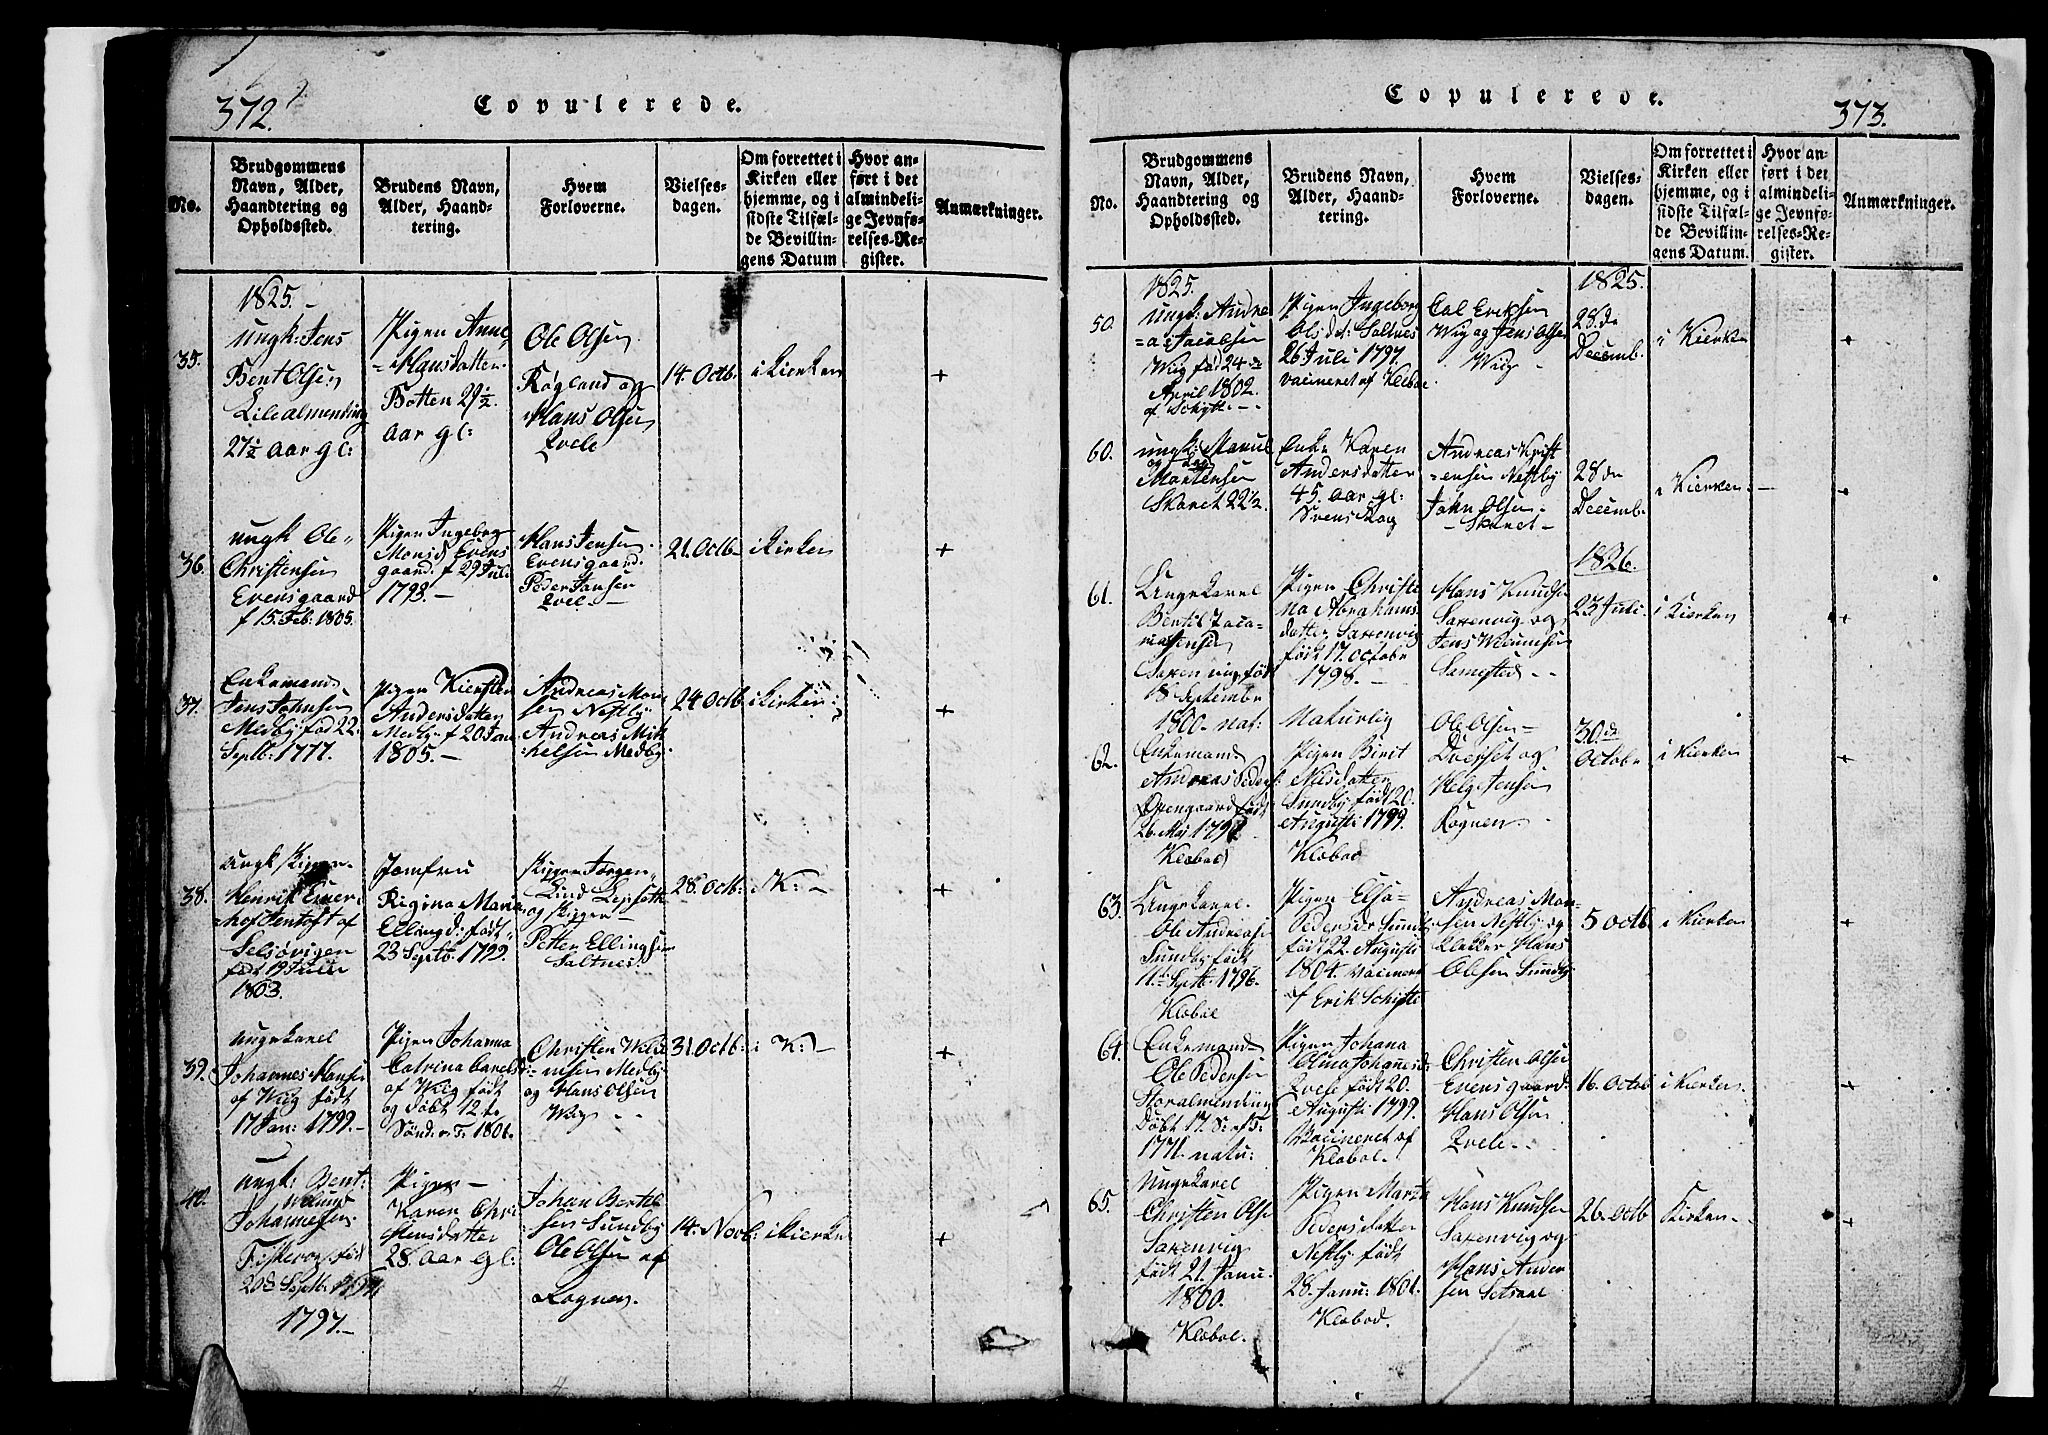 372.
Copulerede.
No.
Brudgommens
Navn, Alder,
Haandtering og
Opholdssted.
Brudens Navn,
Alder, Haand-
tering.
Hvem
Forloverne.
Vielses-
dagen.
Om forrettet i
Kirken eller
hjemme, og i
sidste Tilfæl-
de Bevillin-
gens Datum
Hvor an-
ført i det
almindeli-
ge Jevnfø-
relses-Re-
gister.
Anmærkninger.
1825.
35.
Ungk: Jens
Bent Olsen
Lilealmending
27½ Aar gl:
Pigen Anne
Hansdatter
Botten 29½
Aar gl:
Ole Olsen
Røgland og
Hans Olsen
Qvele
14. Octb.
i Kierken
+
36.
Ungk Ole
Christensen
Evensgaard
f 15. Feb: 1805.
Pigen Ingeborg
Monsd Evens
gaard. f 29 Juli
1798.
Hans Jensen
Evensgaard.
Peder Jansen
Qvel.
21. Octb
i Kirken
+
37.
Enkemand
Jens Johnsen
Medby fød 22
Septb: 1777.
Pigen Kiersten
Andersdatter
Medby f 20 Jan
1805.
Andreas Mon
sen Nestby
Andreas Mik
helsen Medby
24 Octb
i Kirken
+
38.
Ungk Skipper
Henrik
Jentoft af
Selsøvigen
født 19 Julii
1803.
Jomfru
Regina Maria
Ellingd: født
23 Septb: 1799.
Skipper Jørgen
Lund
og Skipper
Petter Ellingsen
Saltnes.
28. Octb:
i K:
+
39.
Ungekarel
Johannes Hansen
af Wiig født
17 Jan: 1799.
Pigen Johanna
Catrina Carelsd
af Wiig født
og døbt 12te
Sønd: e. T. 1801.
Christen Wille
umsen Medby
og Hans Olsen
Wiig
31. Octb:
i K:
+
40.
Ungk: Bent
Welund
Johannesen
Fiskevog fød
20de Septb:
1797.
Pigen
Karen Chri
stensdatter
28. Aar gl:
Johan Bertel
sen Sundby
Ole Olsen af
Rognen.
14. Novb:
i Kierke
+
Copulerede.
373.
No.
Brudgommens
Navn, Alder,
Haandtering og
Opholdssted.
Brudens Navn,
Alder, Haand-
tering.
Hvem
Forloverne.
Vielses-
dagen.
Om forrettet i
Kirken eller
hjemme, og i
sidste Tilfæl-
de Bevillin-
gens Datum.
Hvor an-
ført i det
almindeli-
ge Jevnfø-
relses-Re-
gister.
Anmærkninger.
1825.
1825.
50.
Ungk: Andre
as Jacobsen
Wiig fød 24de
April 1802.
af Schytt.
Pigen Ingeborg
Olsdt: Saltnes
26 Juli 1797.
vacineret af Klæboe
Col Eriksen
Wiig og Jens Olsen
Wiig
28de
Decemb.
i Kierken
+
60.
Ungk:
Mortensen
Skaret 22½
Enke Karen
Andersdatter
45. Aar gl:
Svenskog
Andreas Krist
ensen Nestby
John Olsen
Skaret
28de
Decemb.
i Kierken.
+
1826.
61.
Ungekarel
Bertil Zaca-
riassen
Saxenvig, født
18 Septembr
1800. nat:
Pigen Christi
na Abrahams
datter Saxenvig
født 17. Octobr
1798.
Naturlig
Hans Knudsen
Saxenvig og
Jens Willumsen
Samested
23 Juli
i Kierken
+
62.
Enkemand
Andreas Peders:
født
26 Maj
Klæboe
Pigen Birit
Nilsdatter
Sundby født 20.
Augusti 1799.
Klæboe
Ole Olsen
Dverset og
Helg Jensen
Rognen.
30de
Octobr
i Kierken
+
63.
Ungekarel.
Ole Andreasen
Sundby født
11te Septb. 1796.
Klæboe
Pigen Elsa
Pedersdr Sundby
født 22. Augusti
1804. Vacineret
af Erik Schytte
Andreas Mon-
sen Nestby og
Klokker Hans
Olsen Sundby
5 Octb
i Kierken
+
64.
Enkemand
Ole Pedersen
Storalmending
Døbt 17. S: ef T:
1771. natu:
Pigen Johana
Olina Johanesd
Qvele født 20.
Augusti 1799.
Vacineret af
Klæboe.
Christen Olsen
Evensgaard:
Hans Olsen
Qvele.
16. Octob
i Kierken
+
65.
Ungekarel
Christen Olsen
Saxenvig
født 21. Janu.
1800.
Klæboe.
Pigen Marta
Pedersdatter
Nestby født
28. Janu: 1801.
Klæboe.
Hans Knudsen
Saxenvig og
Hans Ander
sen Setraae
26. Octb
Kirken
+